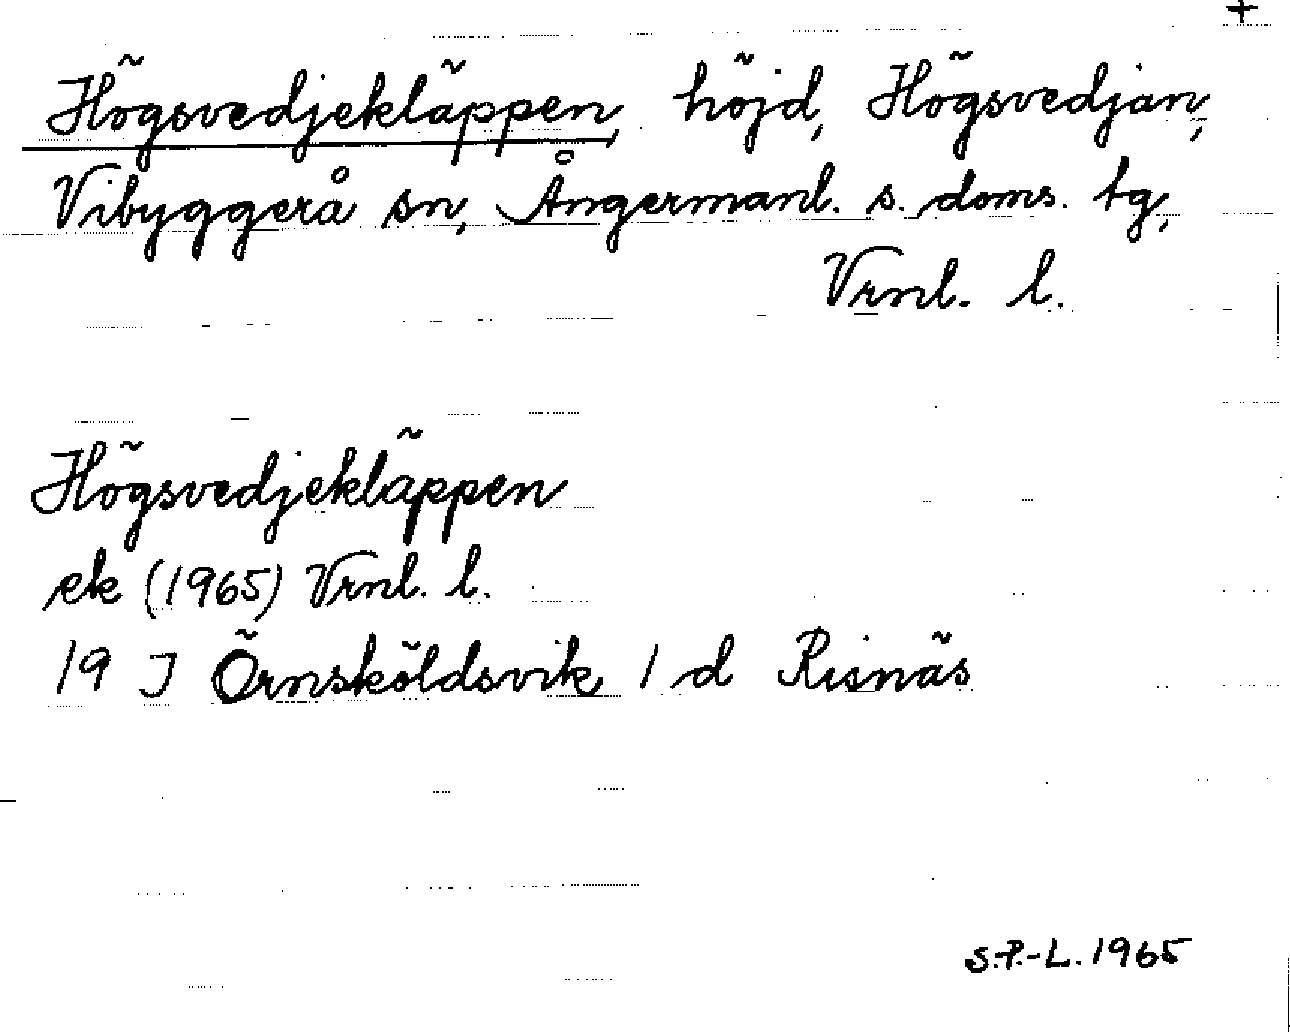 +
Högsvedjekläppen, höjd, Högsvedjan,
Vibyggerå sn, Ångermanl. s. doms. tg,
Vrnl. l.
Högsvedjekläppen
ek (1965) Vrnl. l.
19 J Örnsköldsvik 1 d Risnäs
S.P.-L. 1965